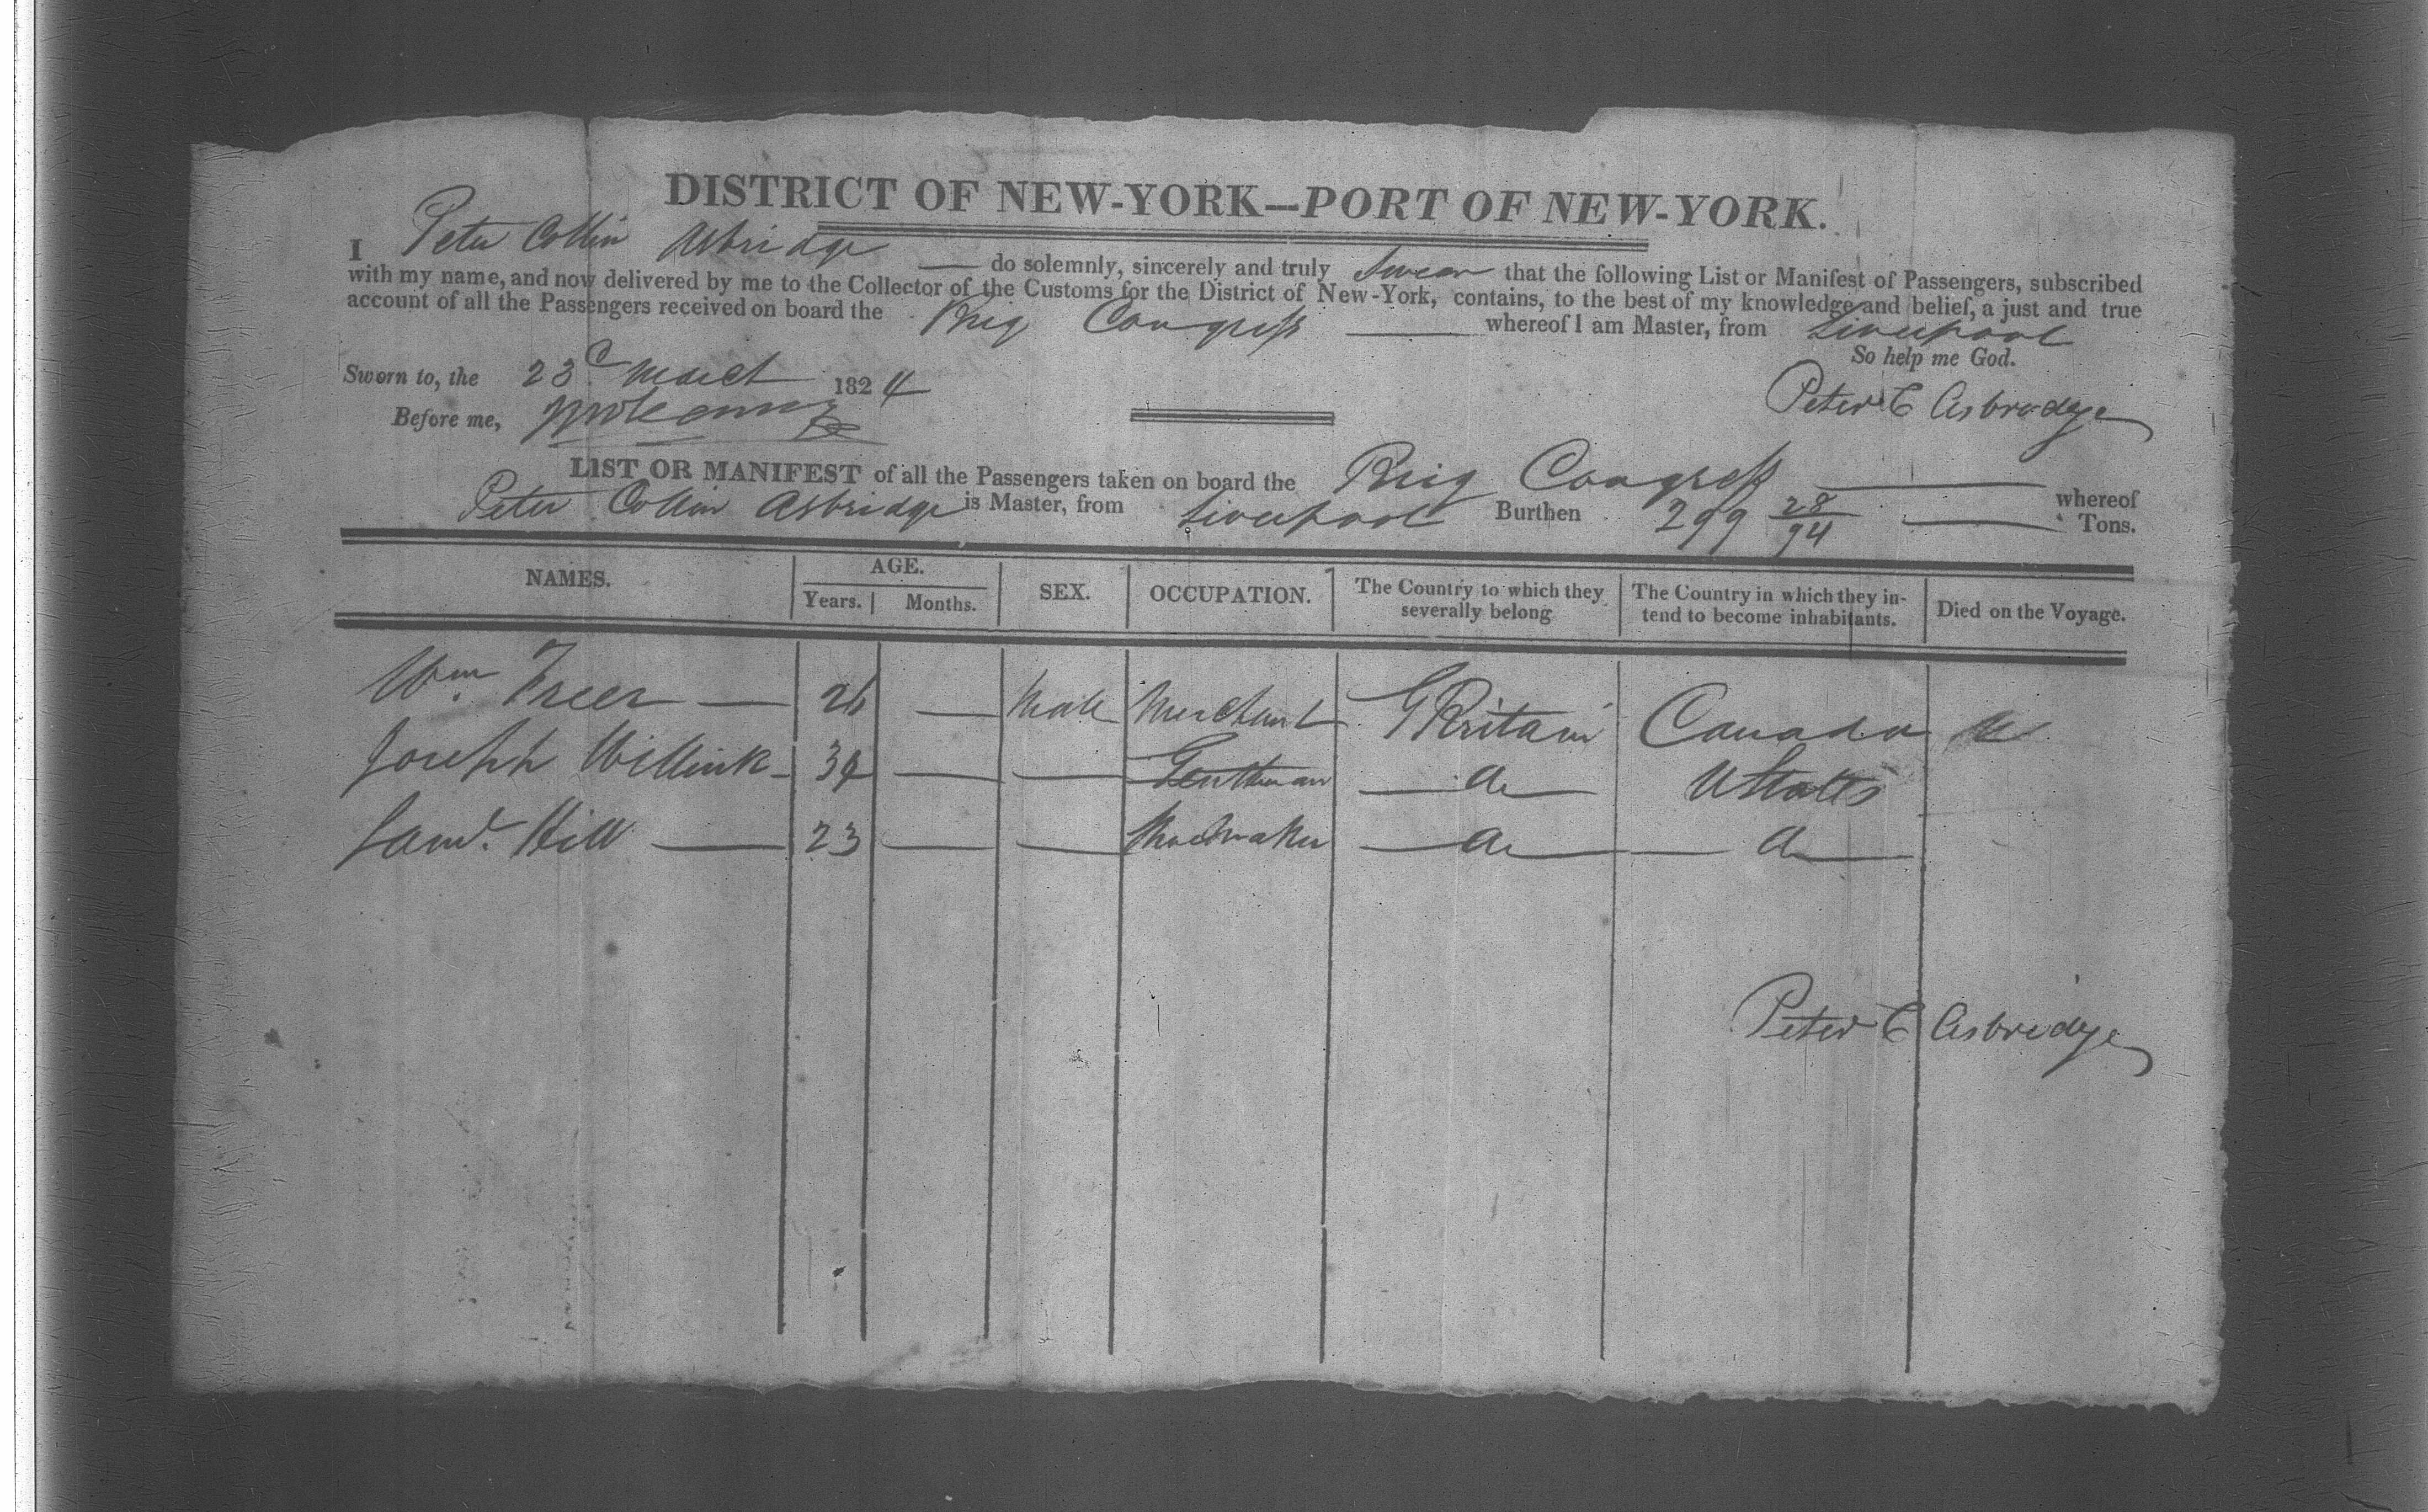 DISTRICT OF NEW-YORK—PORT OF NEW-YORK.
I Peter Collin Asbridge — do solemnly, sincerely and truly Swear that the following List or Manifest of Passengers, subscribed
with my name, and now delivered by me to the Collector of the Customs for the District of New-York, contains, to the best of my knowledge and belief, a just and true
account of all the Passengers received on board the Brig Congress — whereof I am Master, from Liverpool
So help me God.
Sworn to, the 23d March 1824
Peter C Asbridge
Before me,
LIST OR MANIFEST of all the Passengers taken on board the Brig Congress — whereof
Peter Collin Asbridge is Master, from Liverpool Burthen 299 28/94 — Tons.
NAMES. AGE. Years. Months. SEX. OCCUPATION. The Country to which they severally belong The Country in which they intend to become inhabitants. Died on the Voyage.
Wm Freer — 26 — Male Merchant G Britain Canada
Joseph Willink - 34 — — Gentleman — do — U States
Saml. Hill — 23 — — Shoemaker — do — — do —
Peter C Asbridge